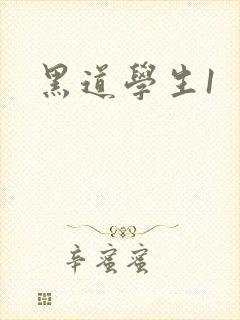 黑道學生1
辛蜜蜜